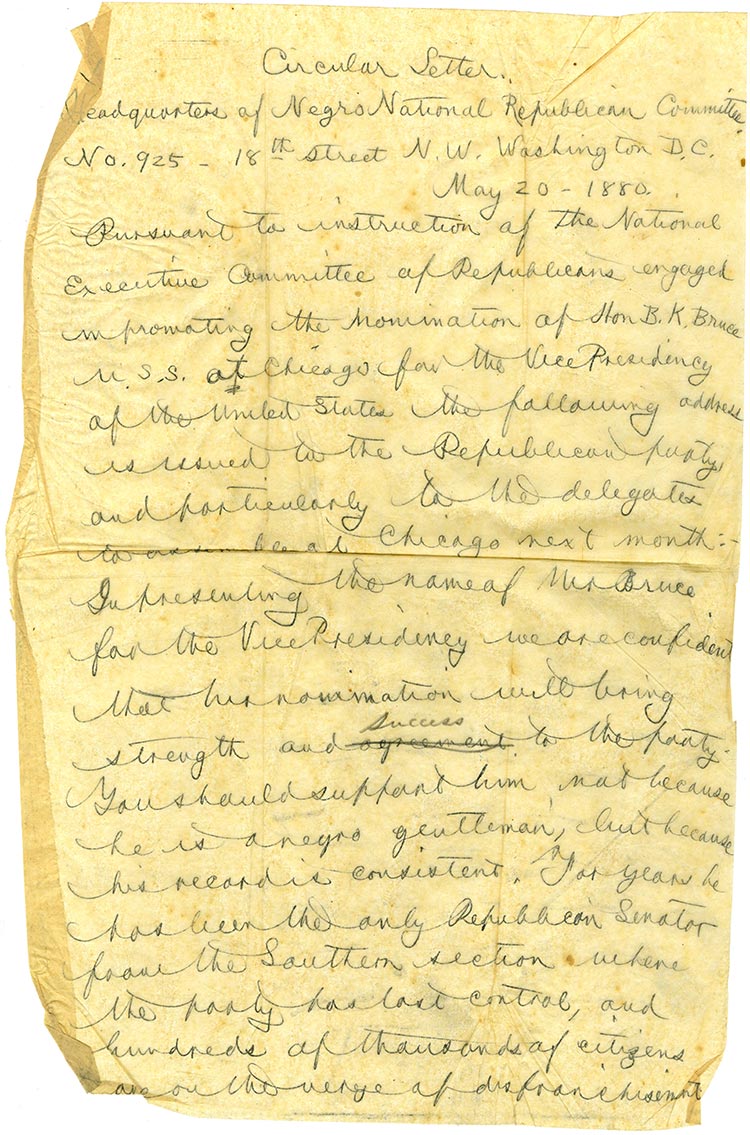 Circular Letter.
Headquarters of Negro National Republican Committee
No. 925 - 18th Street N.W. Washington D.C.
May 20 - 1880.
Pursuant to instruction of the National
Executive Committee of Republicans engaged
in promoting the nomination of Hon B.K. Bruce
U.S.S. at Chicago for the Vice Presidency
of the United States the following address
is issued to the Republican party,
and particularly to the delegates
to assemble at Chicago next month:-
In presenting the name of Mr Bruce
for the Vice Presidency we are confident
that his nomination will bring
success
strength and agreement to the party.
You should support him, not because
he is a negro gentleman, but because
his record is consistent. For years he
has been the only Republican Senator
from the Southern section where
the party has lost control, and
hundreds of thousands of citizens
are on the verge of disfranchisement